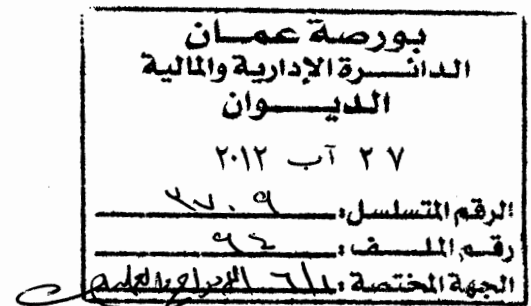 بورصة عمان
الدائرة الإدارية والمالية
الديوان
٢٧ آب ٢٠١٢
الرقم المتسلسل: ٣٧٠٩
رقم الملف: ٩٤
الجهة المختصة: الإدراج